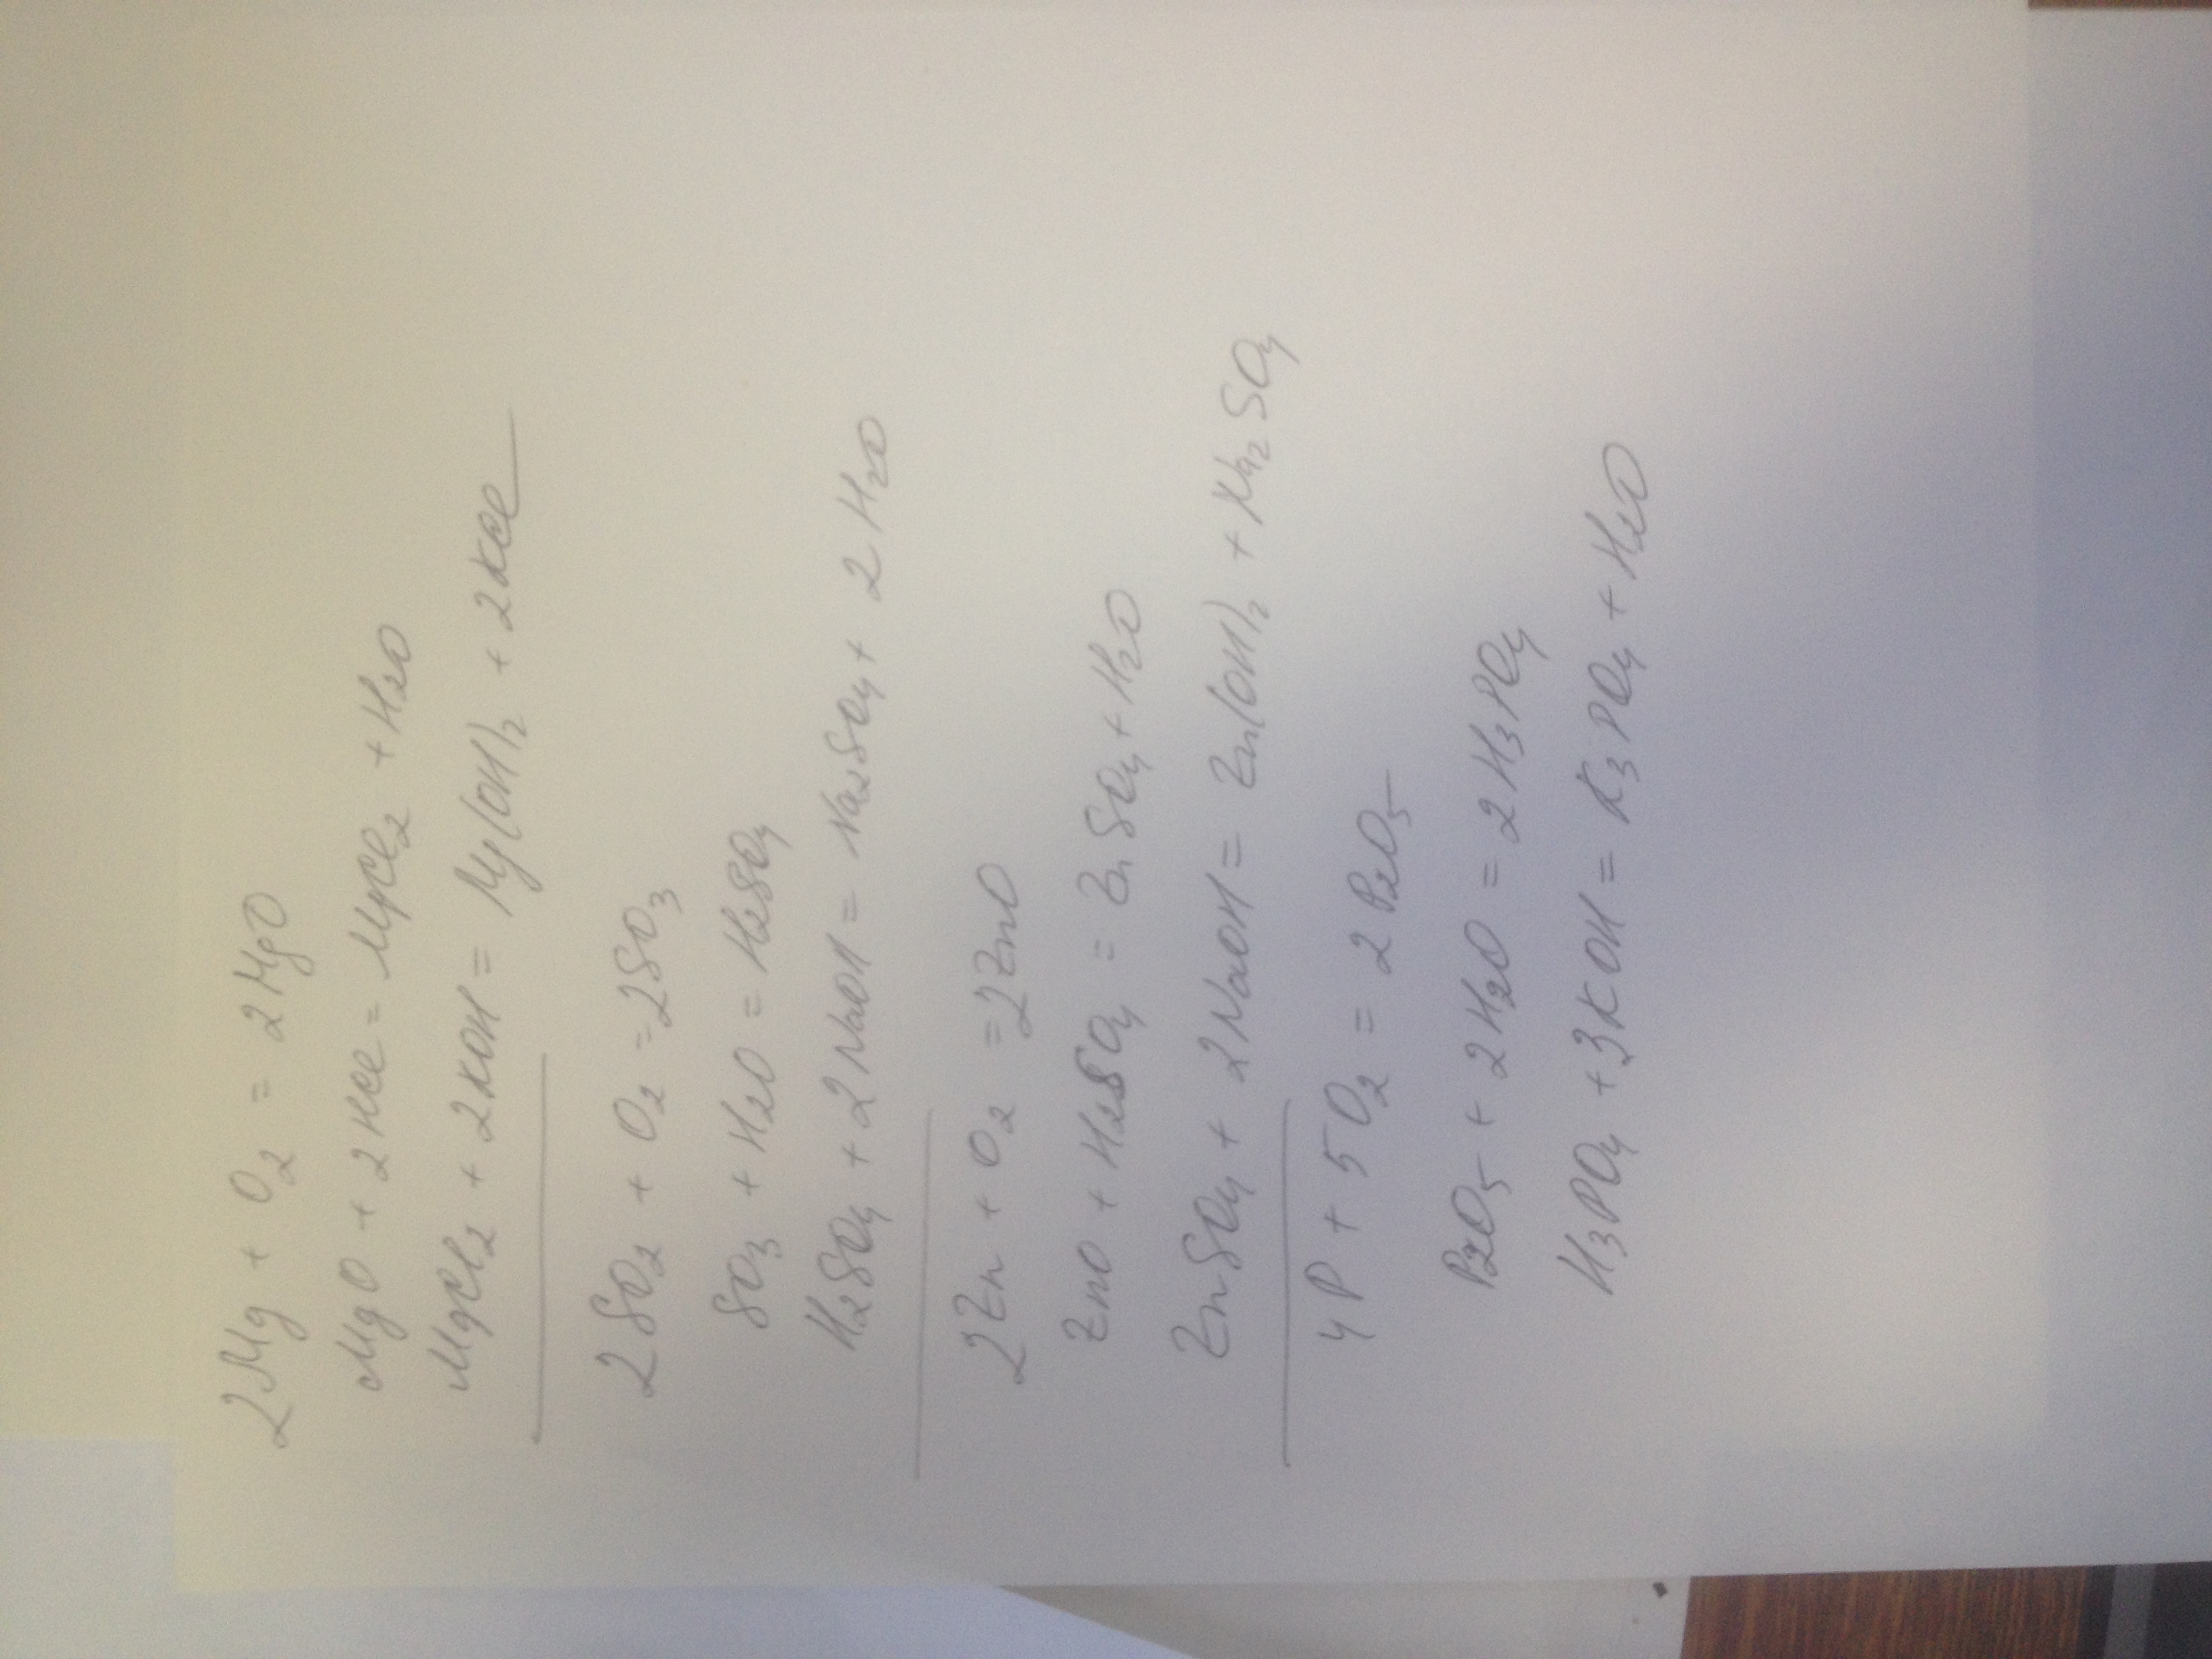 2Mg + O₂ = 2MgO
MgO + 2HCl = MgCl₂ + H₂O
MgCl₂ + 2KOH = Mg(OH)₂ + 2KCl
2SO₂ + O₂ = 2SO₃
SO₃ + H₂O = H₂SO₄
H₂SO₄ + 2NaOH = Na₂SO₄ + 2H₂O
2Zn + O₂ = 2ZnO
ZnO + H₂SO₄ = ZnSO₄ + H₂O
ZnSO₄ + 2NaOH = Zn(OH)₂ + Na₂SO₄
4P + 5O₂ = 2P₂O₅
P₂O₅ + 2H₂O = 2H₃PO₄
H₃PO₄ + 3KOH = K₃PO₄ + H₂O